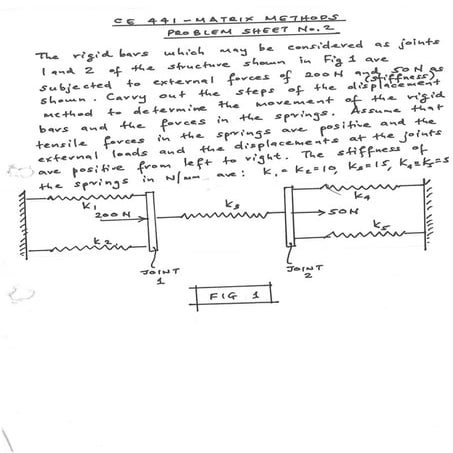 CE 441 - MATRIX METHODS
PROBLEM SHEET No. 2
The rigid bars which may be considered as joints
1 and 2 of the structure shown in Fig 1 are
subjected to external forces of 200N and 50N as
(stiffness)
shown. Carry out the steps of the displacement
method to determine the movement of the rigid
bars and the forces in the springs. Assume that
tensile forces in the springs are positive and the
external loads and the displacements at the joints
are positive from left to right. The stiffness of
the springs in N/mm are: K1 = K2=10, K3=15, K4=K5=5
K1
K4
200N
K3
50N
K2
K5
JOINT
1
JOINT
2
FIG 1